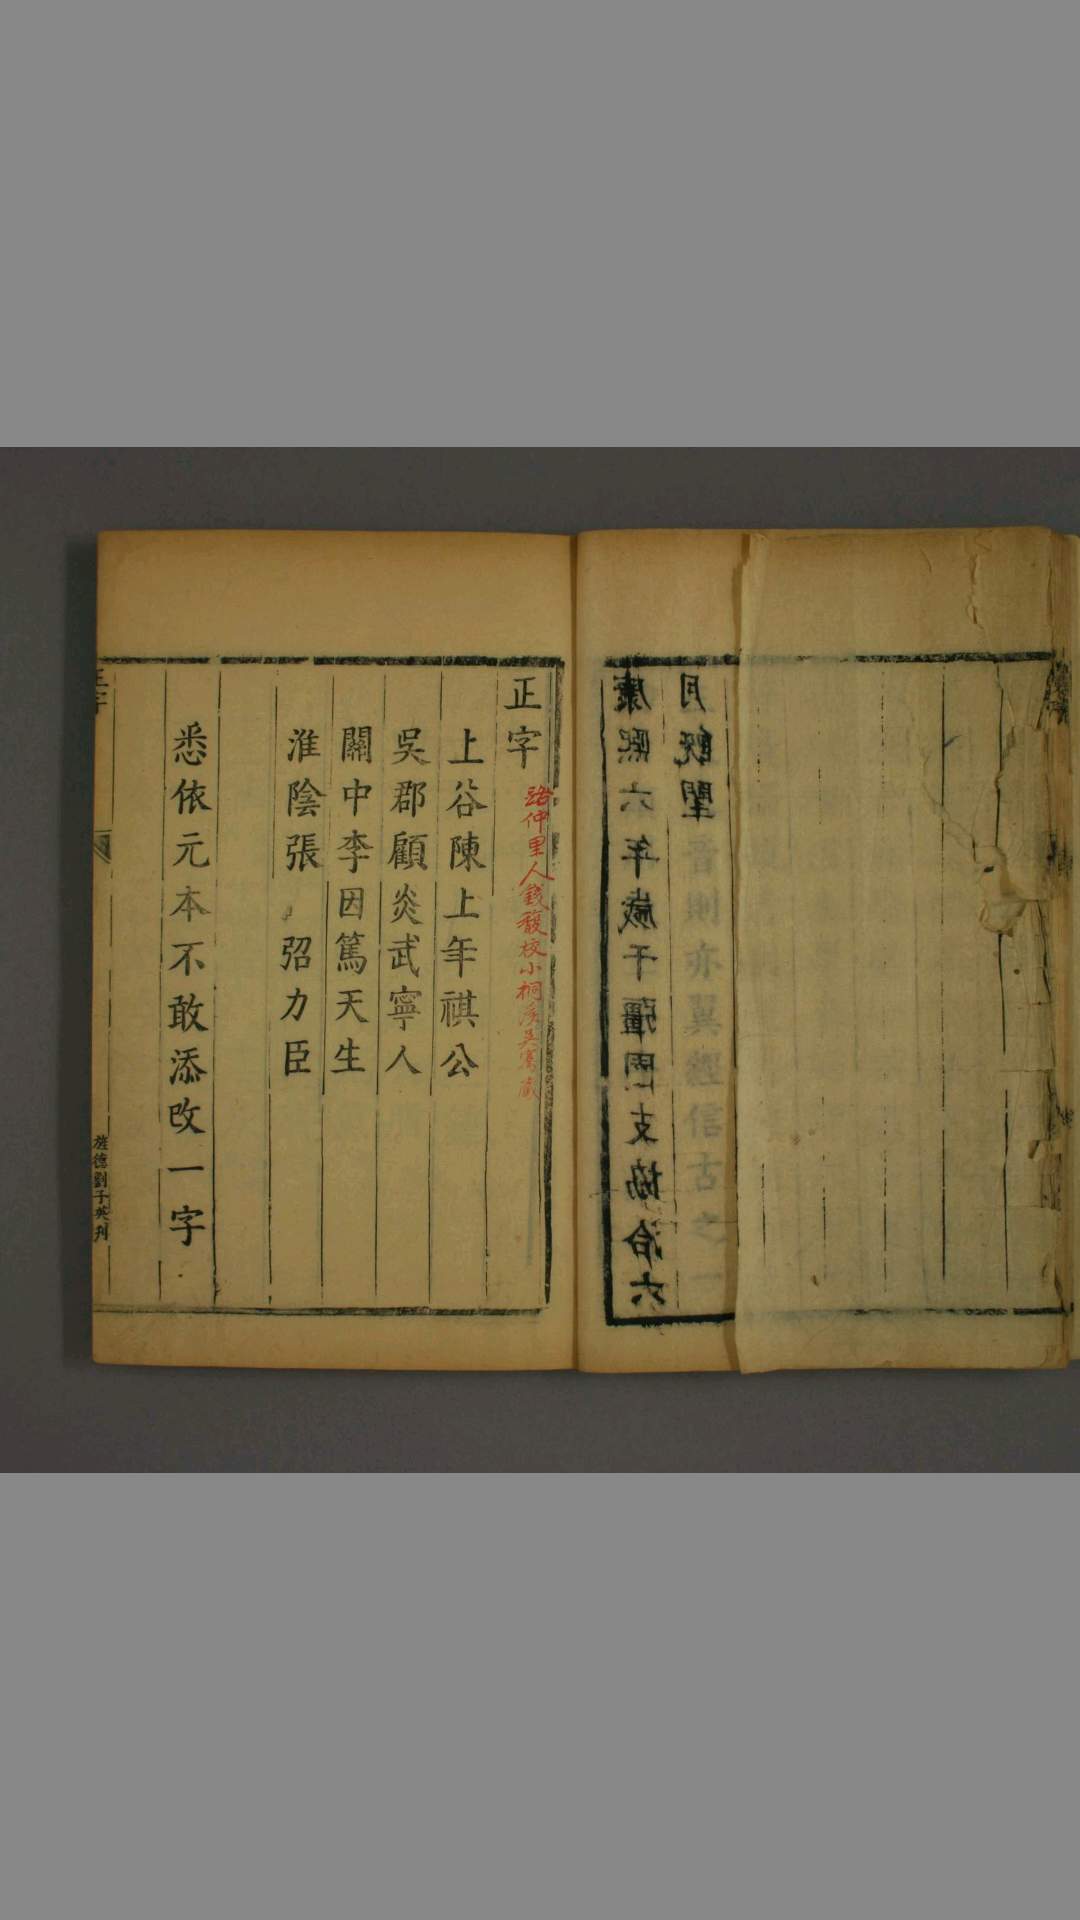 康熙六年歲干彊圉支協洽六
月既望
則亦翼經信古之一
正字
路仲里人錢馥校小桐溪吳騫藏
上谷陳上年祺公
吳郡顧炎武寧人
關中李因篤天生
淮陰張 弨力臣
悉依元本不敢添改一字
正字
旌德劉子英刊